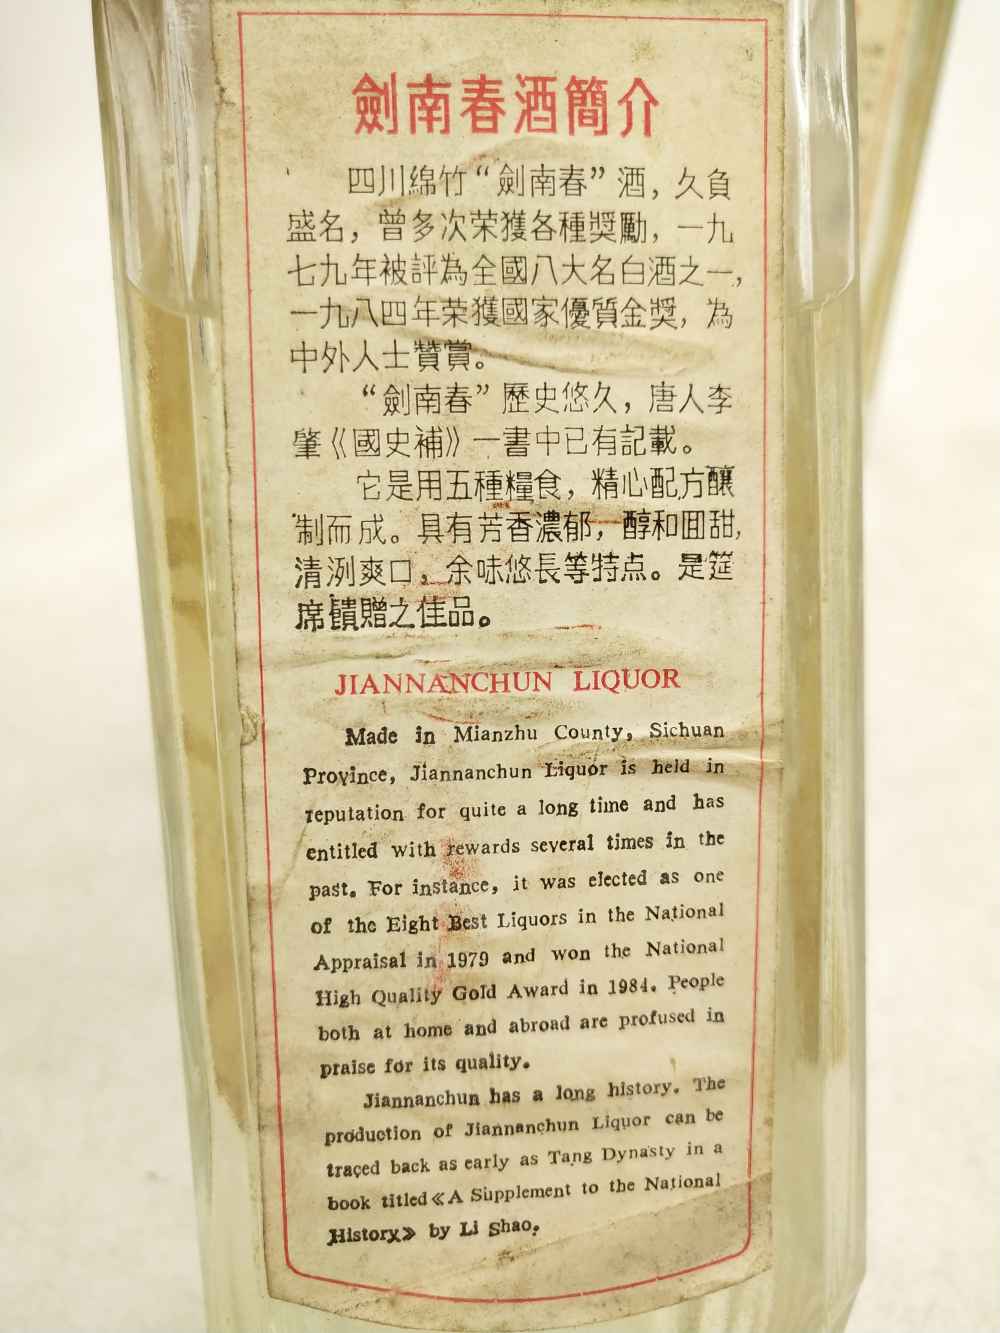 劍南春酒簡介
四川綿竹“劍南春”酒，久負
盛名，曾多次荣獲各種獎勵，一九
七九年被評為全國八大名白酒之一，
一九八四年荣獲國家優質金獎，為
中外人士贊賞。
“劍南春”歷史悠久，唐人李
肇《國史補》一書中已有記載。
它是用五種糧食，精心配方釀
制而成。具有芳香濃郁，醇和囬甜，
清洌爽口，余味悠長等特点。是筵
席饋贈之佳品。
JIANNANCHUN LIQUOR
Made in Mianzhu County, Sichuan
Province, Jiannanchun Liquor is held in
reputation for quite a long time and has
entitled with rewards several times in the
past. For instance, it was elected as one
of the Eight Best Liquors in the National
Appraisal in 1979 and won the National
High Quality Gold Award in 1984. People
both at home and abroad are profused in
praise for its quality.
Jiannanchun has a long history. The
production of Jiannanchun Liquor can be
traced back as early as Tang Dynasty in a
book titled《A Supplement to the National
History》 by Li Shao.